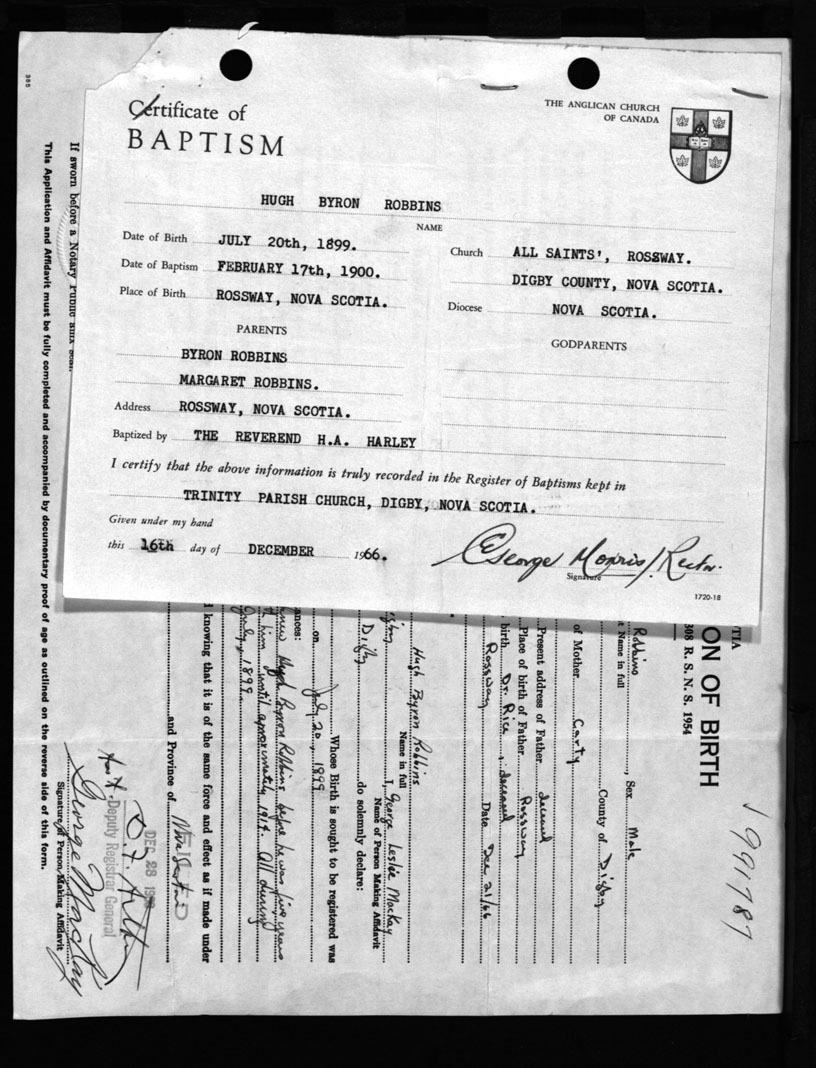 Certificate of
BAPTISM
THE ANGLICAN CHURCH
OF CANADA
HUGH BYRON ROBBINS
NAME
Date of Birth JULY 20th, 1899.
Date of Baptism FEBRUARY 17th, 1900.
Place of Birth ROSSWAY, NOVA SCOTIA.
Church ALL SAINTS', ROSSWAY.
DIGBY COUNTY, NOVA SCOTIA.
Diocese NOVA SCOTIA.
PARENTS
BYRON ROBBINS
MARGARET ROBBINS.
Address ROSSWAY, NOVA SCOTIA.
Baptized by THE REVEREND H.A. HARLEY
GODPARENTS
I certify that the above information is truly recorded in the Register of Baptisms kept in
TRINITY PARISH CHURCH, DIGBY, NOVA SCOTIA.
Given under my hand
this 16th day of DECEMBER 1966.
George Morris/Rector.
Signature
1720-18
TIA
ON OF BIRTH
308 R. S. N. S. 1954
1991787
Robbins, Sex Male
Name in full
County of Digby
of Mother Carty
Present address of Father deceased
Place of birth of Father Rossway
birth Dr. Rice, deceased
Rossway Date Dec 21/66
Hugh Byron Robbins
Name in full
I, George Leslie MacKay
Name of Person Making Affidavit
Digby do solemnly declare:
Whose Birth is sought to be registered was
on July 20, 1899
ances:
knew Hugh Byron Robbins before he was five years
him until approximately 1914. All during
July, 1899.
knowing that it is of the same force and effect as if made under
and Province of Nova Scotia
DEC 28
Deputy Registrar General
George MacKay
Signature of Person Making Affidavit
If sworn before a Notary Public
This Application and Affidavit must be fully completed and accompanied by documentary proof of age as outlined on the reverse side of this form.
385